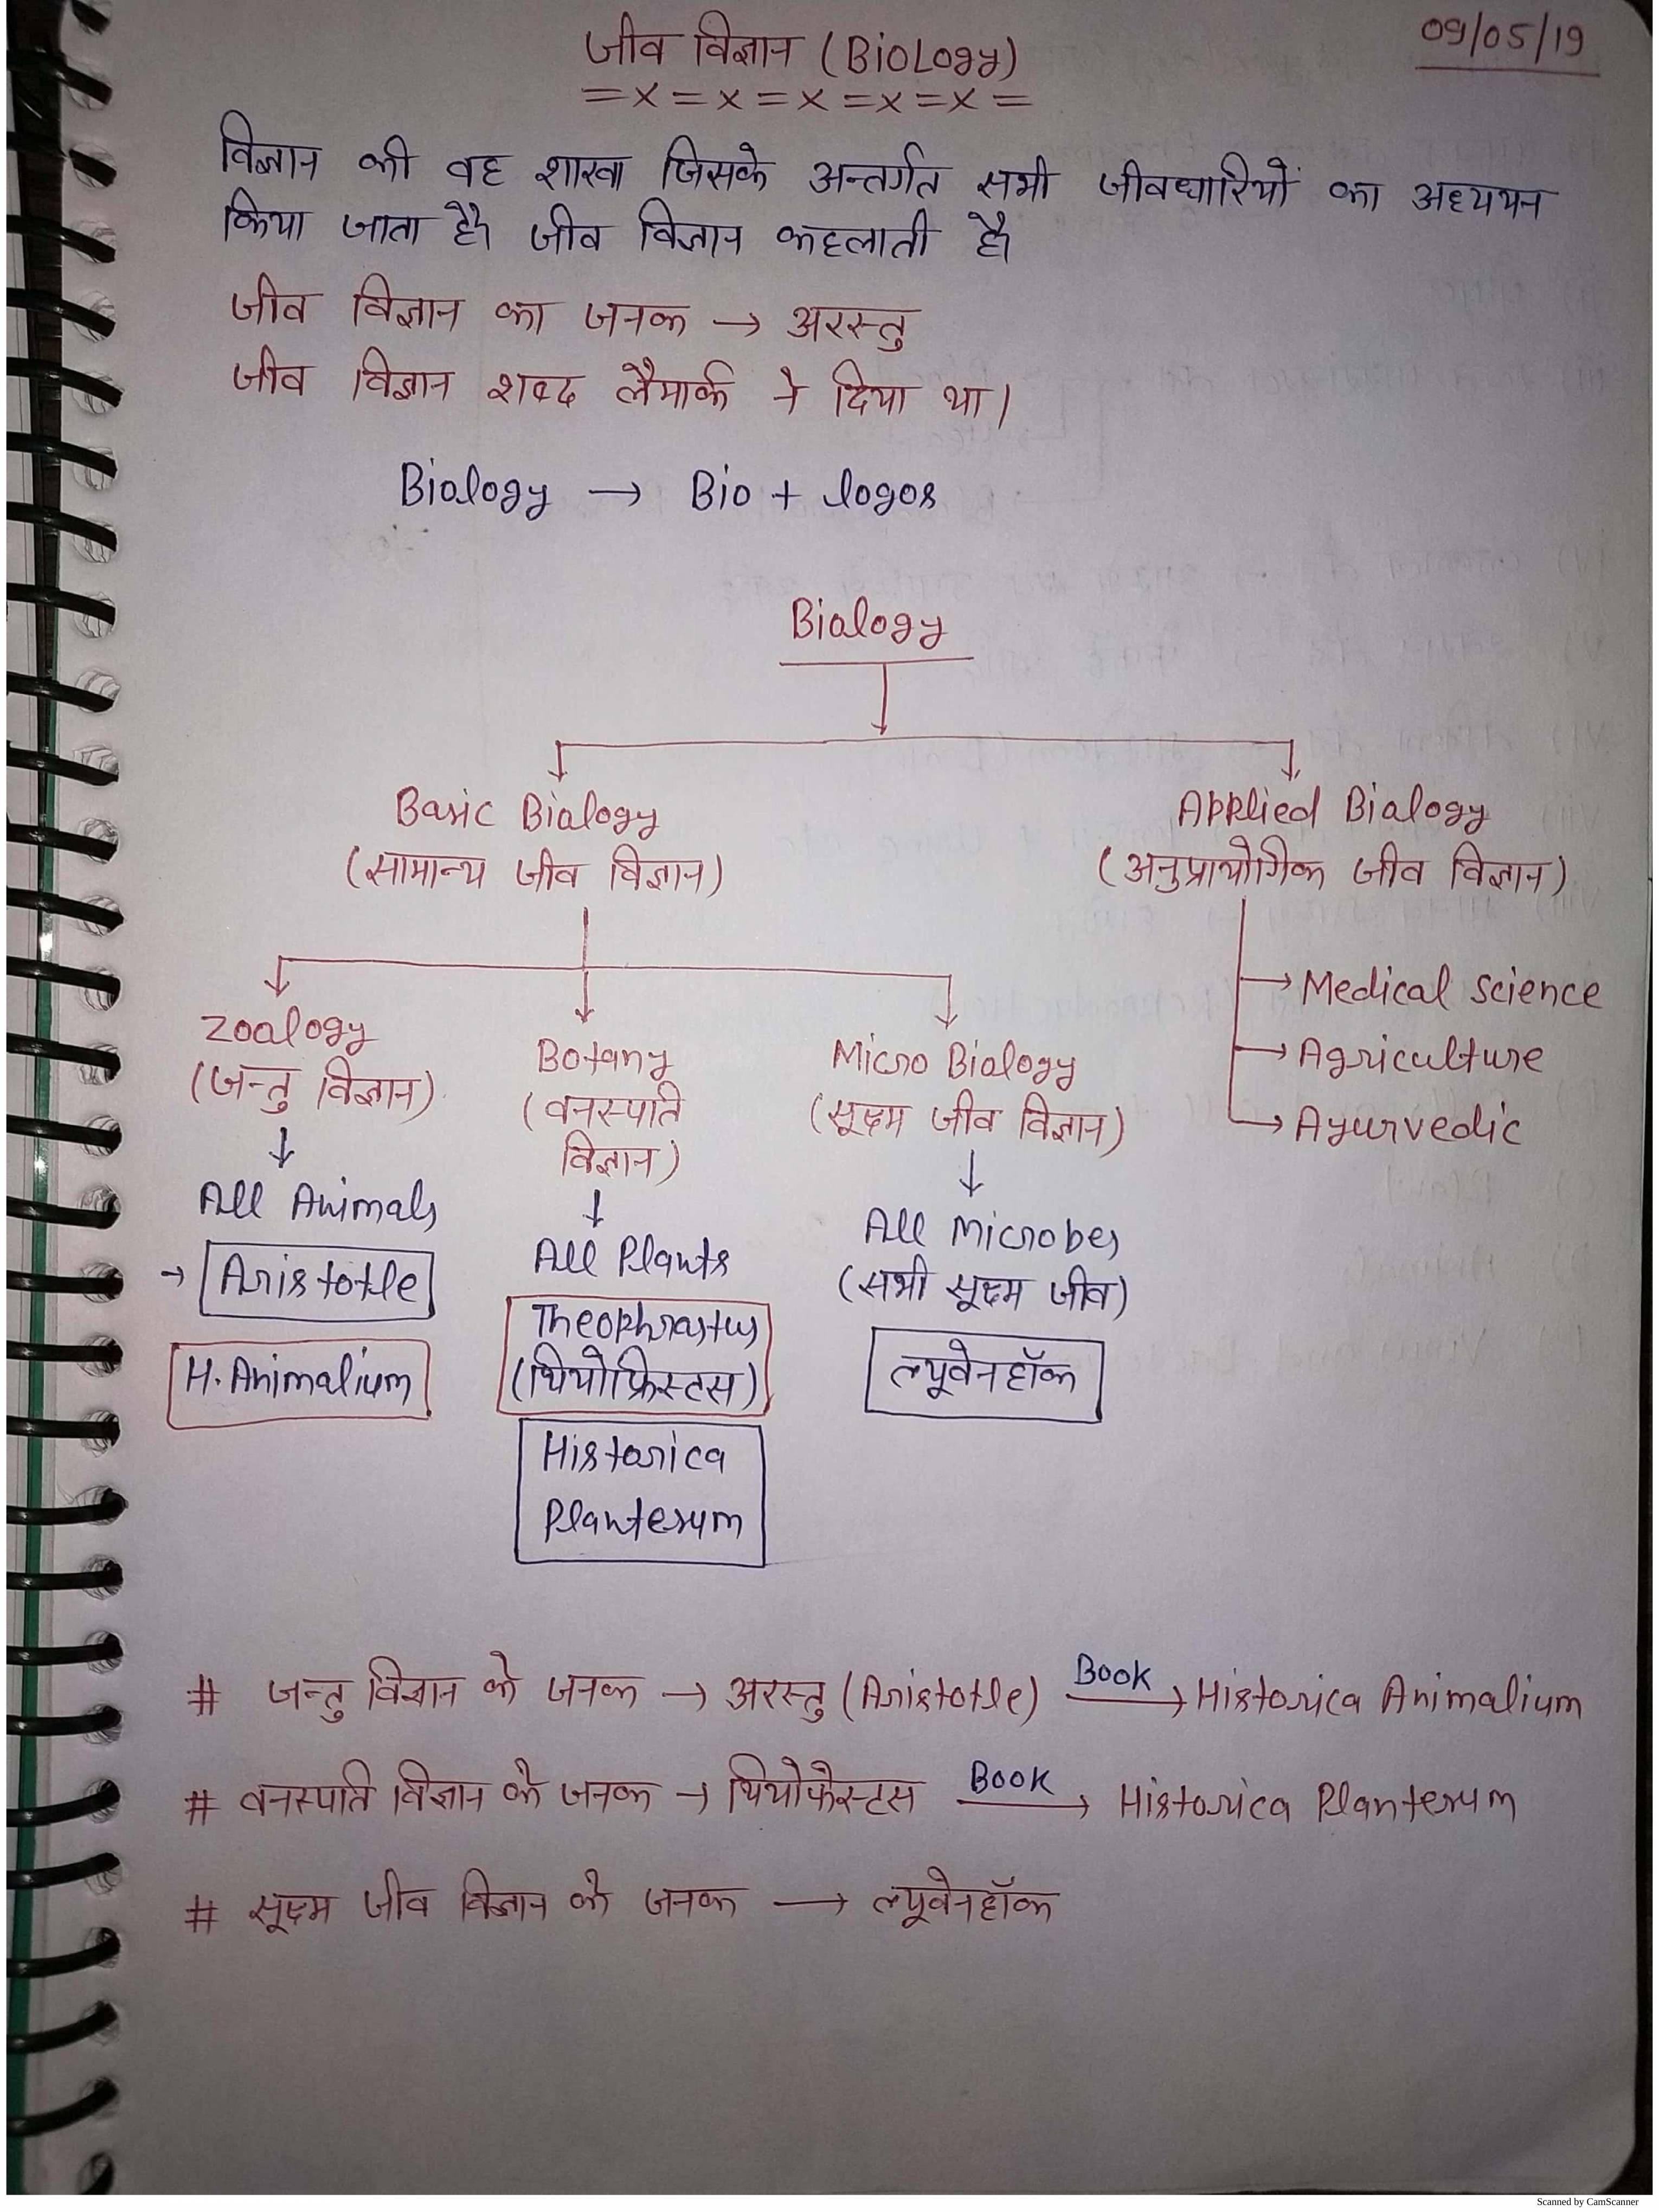 जीव विज्ञान (Biology)
09/05/19
= x = x = x = x = x =
विज्ञान की वह शाखा जिसके अन्तर्गत सभी जीवधारियों का अध्ययन
किया जाता है। जीव विज्ञान कहलाती है।
जीव विज्ञान का जनक → अरस्तु
जीव विज्ञान शब्द लैमार्क ने दिया था।
Biology → Bio + logos
Biology
Basic Biology
Applied Biology
(सामान्य जीव विज्ञान)
(अनुप्रायोगिक जीव विज्ञान)
→ Medical science
→ Agriculture
→ Ayurvedic
Zoology
(जन्तु विज्ञान)
↓
All Animals
→ Aristotle
H. Animalium
Botany
(वनस्पति
विज्ञान)
↓
All Plants
Theophrastus
(थियोफ्रिस्टस)
Historica
Planterum
Micro Biology
(सूक्ष्म जीव विज्ञान)
↓
All Microbes
(सभी सूक्ष्म जीव)
ल्यूवेनहॉक
# जन्तु विज्ञान के जनक → अरस्तु (Aristotle) Book → Historica Animalium
# वनस्पति विज्ञान के जनक → थियोफ्रेस्टस Book → Historica Planterum
# सूक्ष्म जीव विज्ञान के जनक → ल्यूवेनहॉक
Scanned by CamScanner